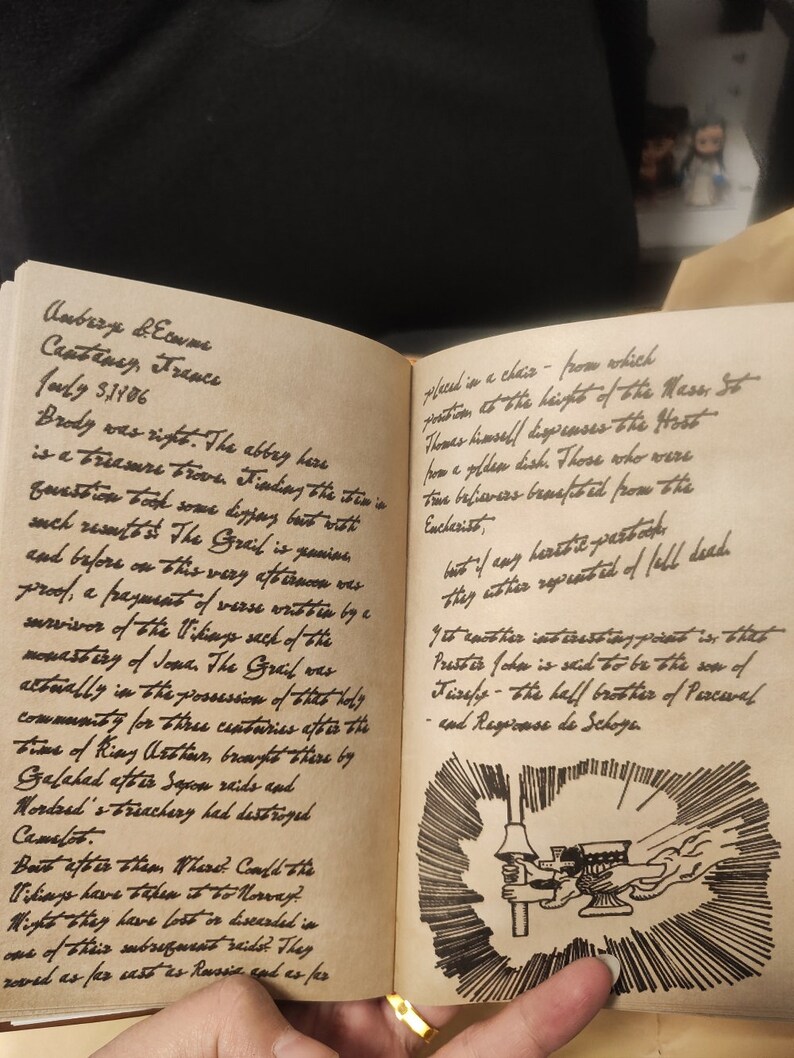 Auberge d'Ecume
Cantaney, France
July 3,1906
Brody was right. The abbey here
is a treasure trove. Finding the item in
question took some digging but with
such results! The Grail is genuine,
and before on this very afternoon was
proof, a fragment of verse written by a
survivor of the Vikings sack of the
monastery of Iona. The Grail was
actually in the possession of that holy
community for three centuries after the
time of King Arthur, brought there by
Galahad after Saxon raids and
Mordred's treachery had destroyed
Camelot.
But after them, Where? Could the
Vikings have taken it to Norway?
Might they have lost or discarded in
one of their subsequent raids? They
roved as far east as Russia and as far
placed in a chair - from which
position, at the height of the Mass, St
Thomas himself dispenses the Host
from a golden dish. Those who were
true believers benefited from the
Eucharist,
but if any heretic partook,
they either repented of fell dead.
Yet another interesting point is, that
Prester John is said to be the son of
Fierefiz - the half brother of Perceval
- and Response de Schoye.